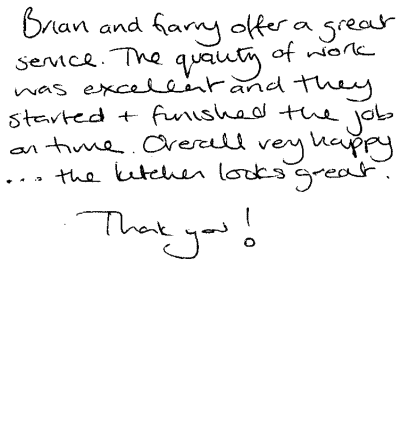 Brian and Garry offer a great
service. The quality of work
was excellent and they
started + finished the job
on time. Overall very happy
... the kitchen looks great.
Thank you!